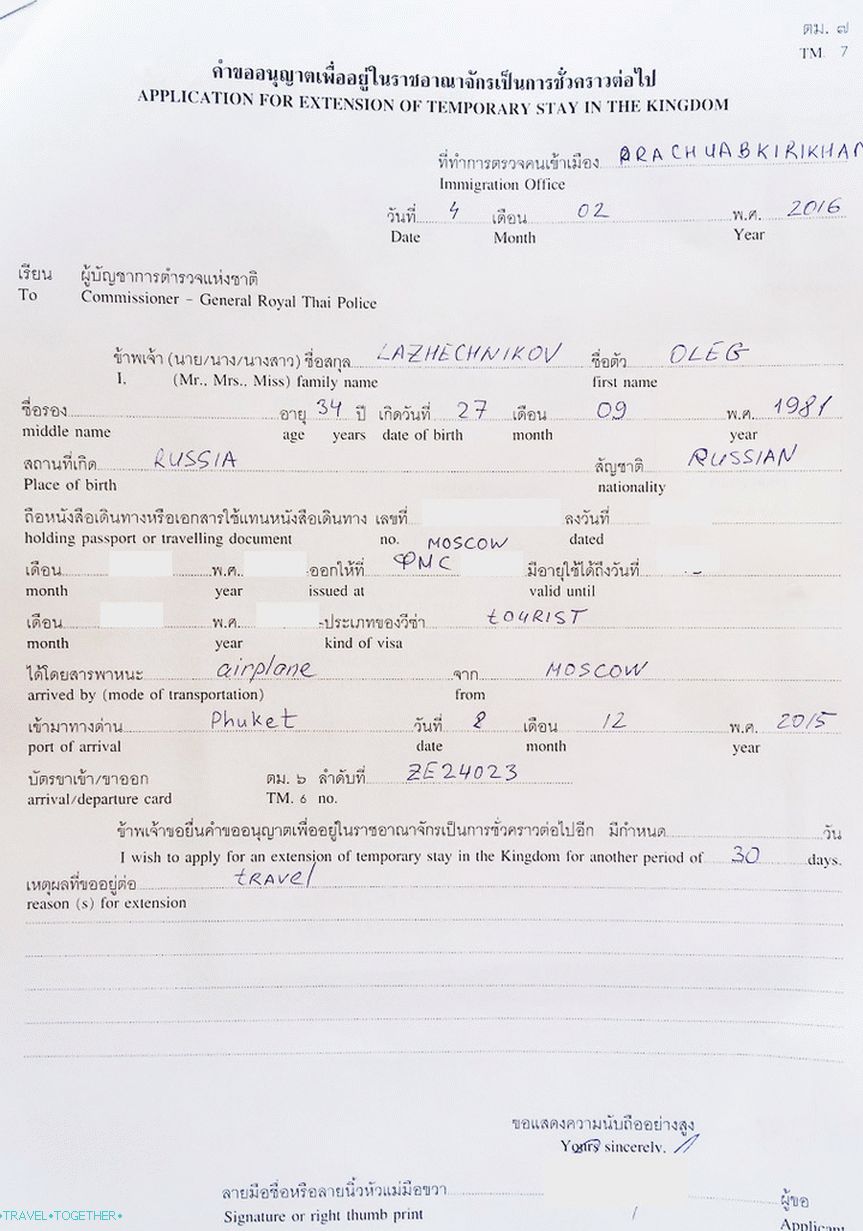 ตม. ๗
TM. 7
คำขออนุญาตเพื่ออยู่ในราชอาณาจักรเป็นการชั่วคราวต่อไป
APPLICATION FOR EXTENSION OF TEMPORARY STAY IN THE KINGDOM
ที่ทำการตรวจคนเข้าเมือง PRACHUABKIRIKHAN
Immigration Office
วันที่ 4 เดือน 02 พ.ศ. 2016
Date Month Year
เรียน ผู้บัญชาการตำรวจแห่งชาติ
To Commissioner – General Royal Thai Police
ข้าพเจ้า (นาย/นาง/นางสาว) ชื่อสกุล LAZHECHNIKOV ชื่อตัว OLEG
I. (Mr., Mrs., Miss) family name first name
ชื่อรอง อายุ 34 ปี เกิดวันที่ 27 เดือน 09 พ.ศ. 1981
middle name age years date of birth month year
สถานที่เกิด RUSSIA สัญชาติ RUSSIAN
Place of birth nationality
ถือหนังสือเดินทางหรือเอกสารใช้แทนหนังสือเดินทาง เลขที่ ลงวันที่
holding passport or travelling document no. MOSCOW dated
เดือน พ.ศ. ออกให้ที่ ФМС มีอายุใช้ได้ถึงวันที่
month year issued at valid until
เดือน พ.ศ. -ประเภทของวีซ่า tOURIST
month year kind of visa
ได้โดยสารพาหนะ airplane จาก MOSCOW
arrived by (mode of transportation) from
เข้ามาทางด่าน Phuket วันที่ 8 เดือน 12 พ.ศ. 2015
port of arrival date month year
บัตรขาเข้า/ขาออก ตม. ๖ ลำดับที่ ZE24023
arrival/departure card TM. 6 no.
ข้าพเจ้าขอยื่นคำขออนุญาตเพื่ออยู่ในราชอาณาจักรเป็นการชั่วคราวต่อไปอีก มีกำหนด วัน
I wish to apply for an extension of temporary stay in the Kingdom for another period of 30 days.
เหตุผลที่ขออยู่ต่อ tRAVEl
reason (s) for extension
ขอแสดงความนับถืออย่างสูง
Yours sincerely.
ลายมือชื่อหรือลายนิ้วหัวแม่มือขวา ผู้ขอ
Signature or right thumb print Applicant
•TRAVEL•TOGETHER•